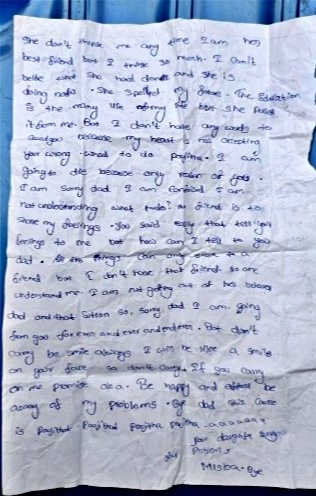 She don't think me any time I am her
best friend but I think so much. I can't
what she had done and she is
doing now. She spoiled my future. The Education
is the many life of my life but she
it from me. But I don't have any words to
because my heart is not accepting
your wrong. what to do Pavitra. I am
going to die because only reason of you.
I am sorry dad I am confused I am
not understanding what to do? no friend is to
share my feelings. You said easy that tell your
feelings to me but how can I tell to you
dad. All the things can only share to a
friend but I don't have that friend. no one
understand me. I am not getting out of his
dad and that so, sorry, dad I am going
from you for ever and ever and ever. But don't
carry be smile always I will be like a smile
on your face so don't carry. If you carry
on me promise aka. Be happy and be
away of my problems. Bye dad this cause
is
your daughter
your problem
Misba. Bye